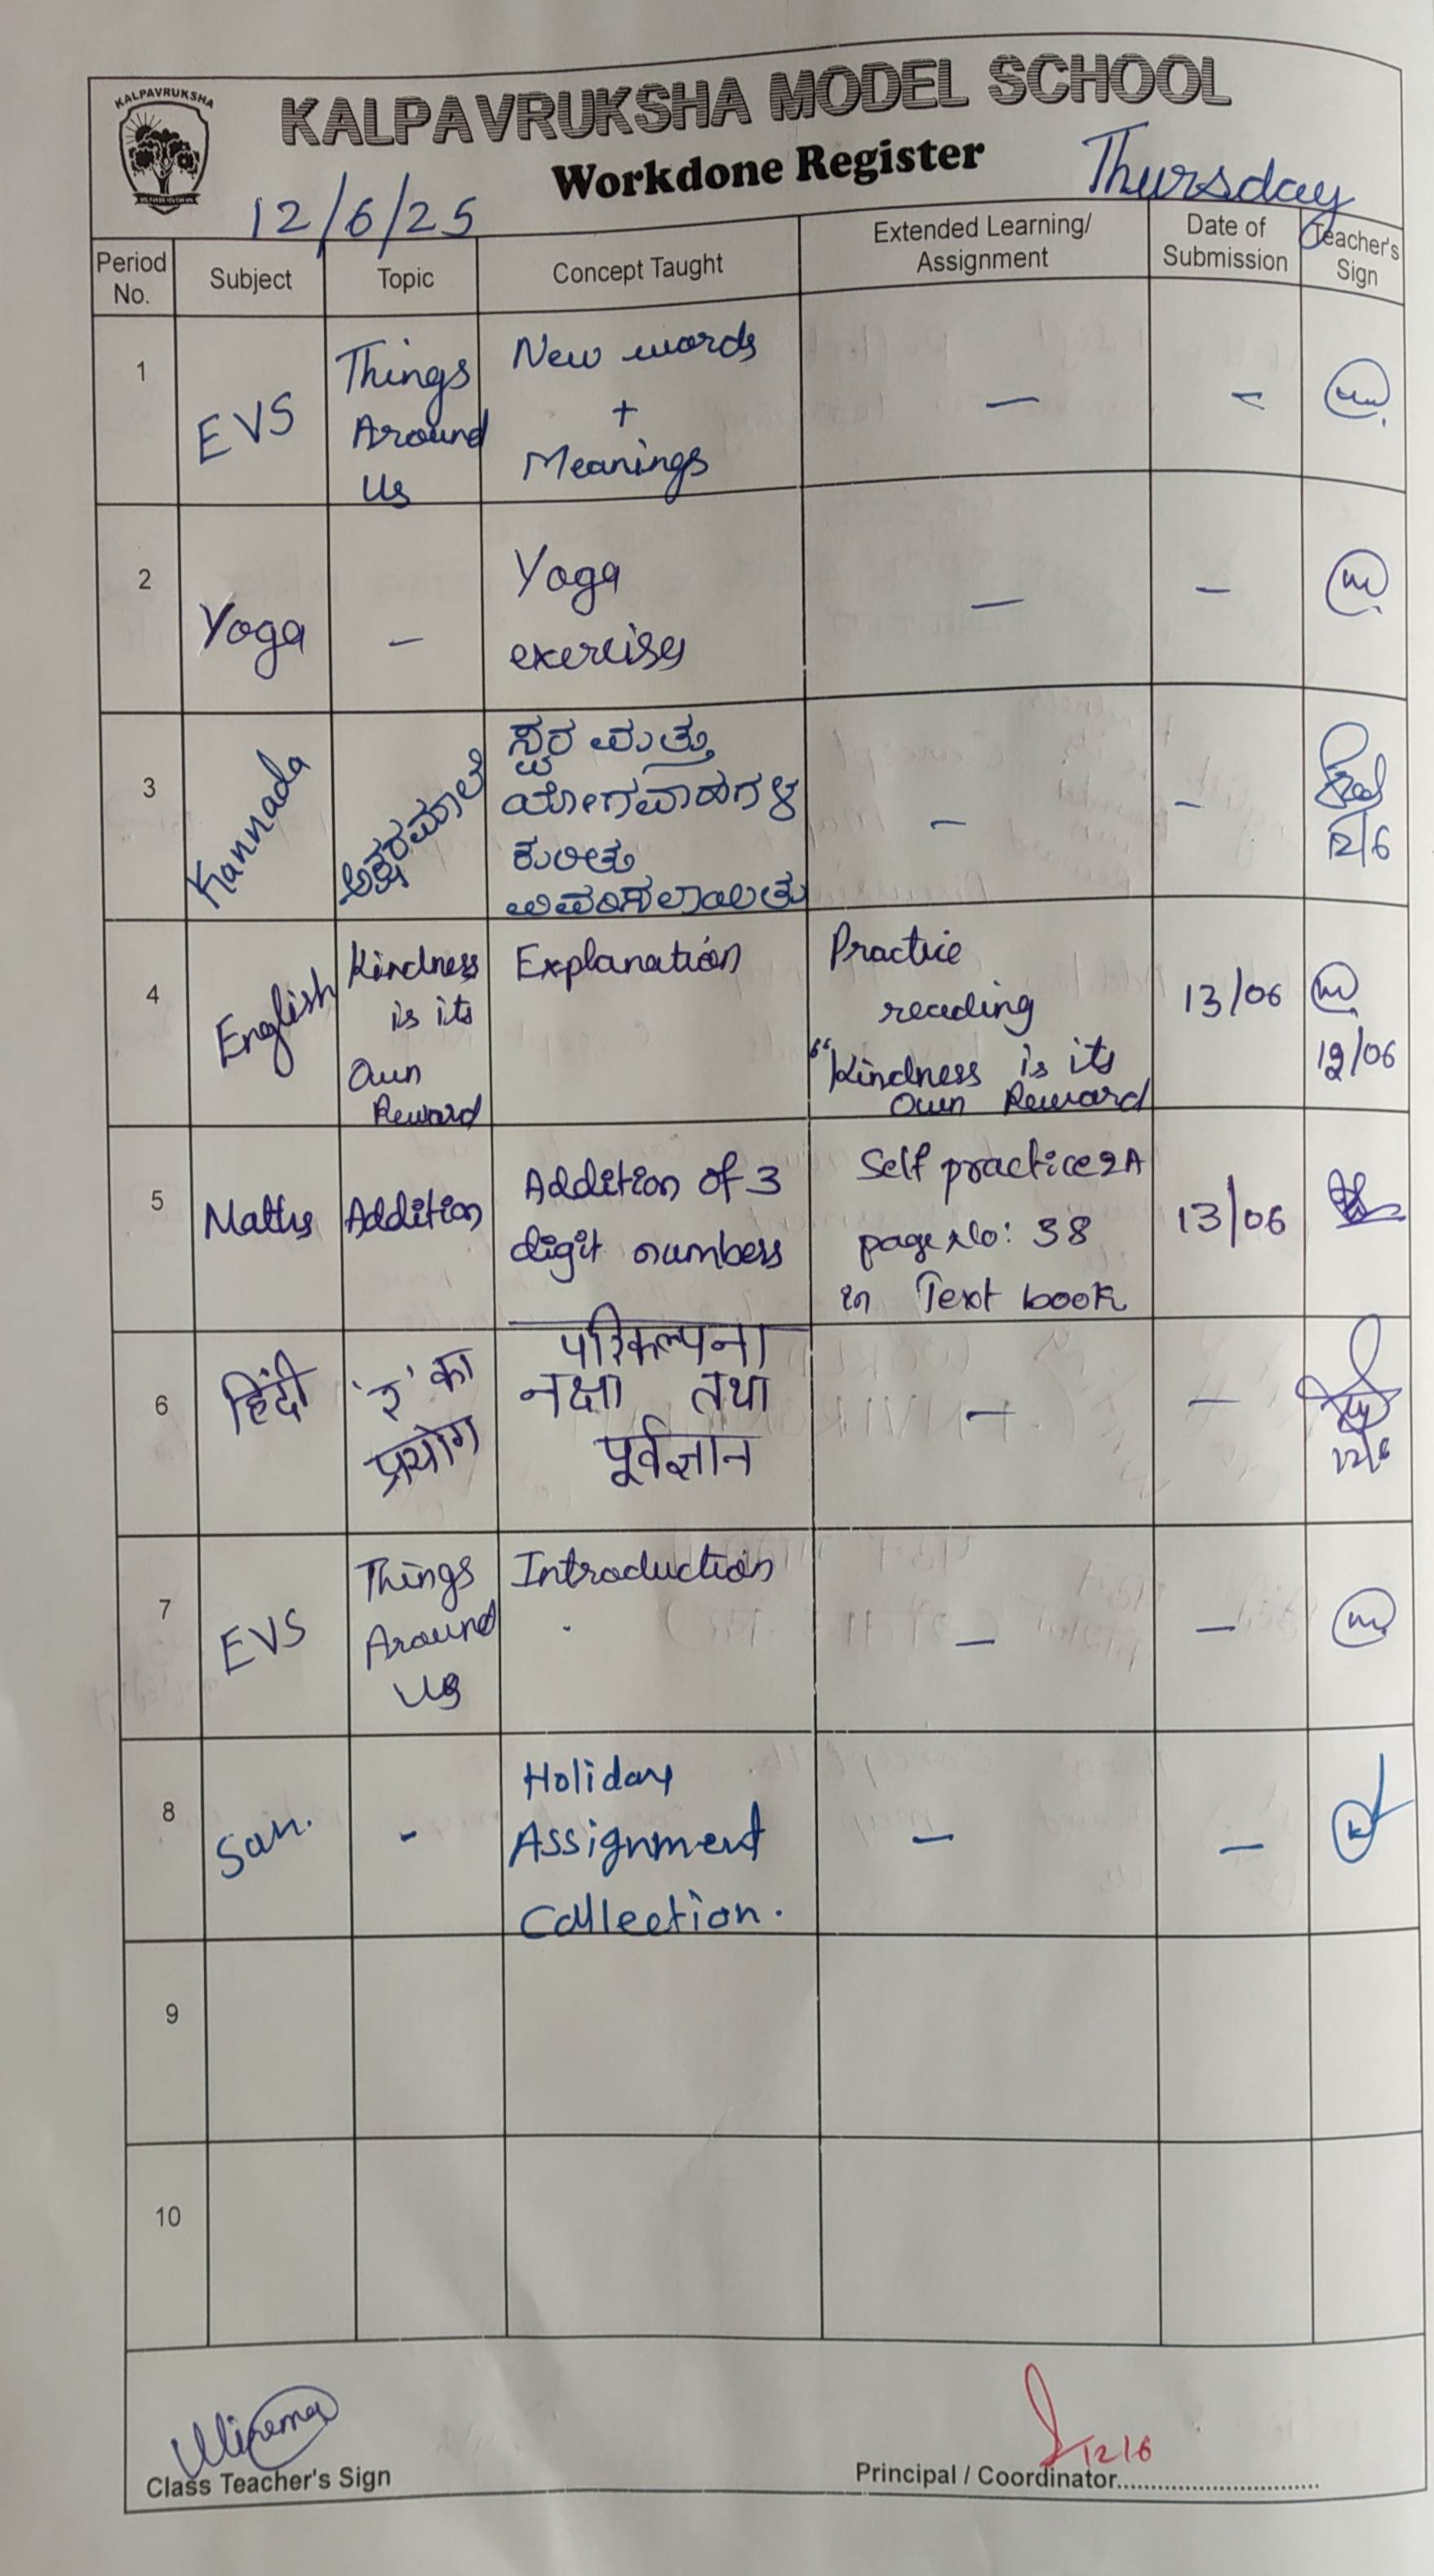 KALPAVRUKSHA
KALPAVRUKSHA MODEL SCHOOL
Workdone Register
12/6/25
Thursday
Period No.
Subject
Topic
Concept Taught
Extended Learning/
Assignment
Date of
Submission
Teacher's
Sign
1
EVS
Things
Around
Us
New words
+
Meanings
—
—
2
Yoga
—
Yoga
exercises
—
—
3
Kannada
ಅಕ್ಷರಮಾಲೆ
ಸ್ವರ ಮತ್ತು
ಯೋಗವಾಹಗಳ
ಕುರಿತು
—
—
12/6
4
English
Kindness
is its
Own
Reward
Explanation
Practice
reading
"Kindness is its
Own Reward
13/06
12/06
5
Maths
Addition
Addition of 3
digit numbers
Self practice 2A
page No: 38
in Text book
13/06
6
हिंदी
'र' का
प्रयोग
परिकल्पना
नक्षा तथा
पूर्वज्ञान
—
—
12/6
7
EVS
Things
Around
Us
Introduction
—
—
8
San.
-
Holiday
Assignment
Collection.
—
—
9
10
Class Teacher's Sign
12/6
Principal / Coordinator..............................